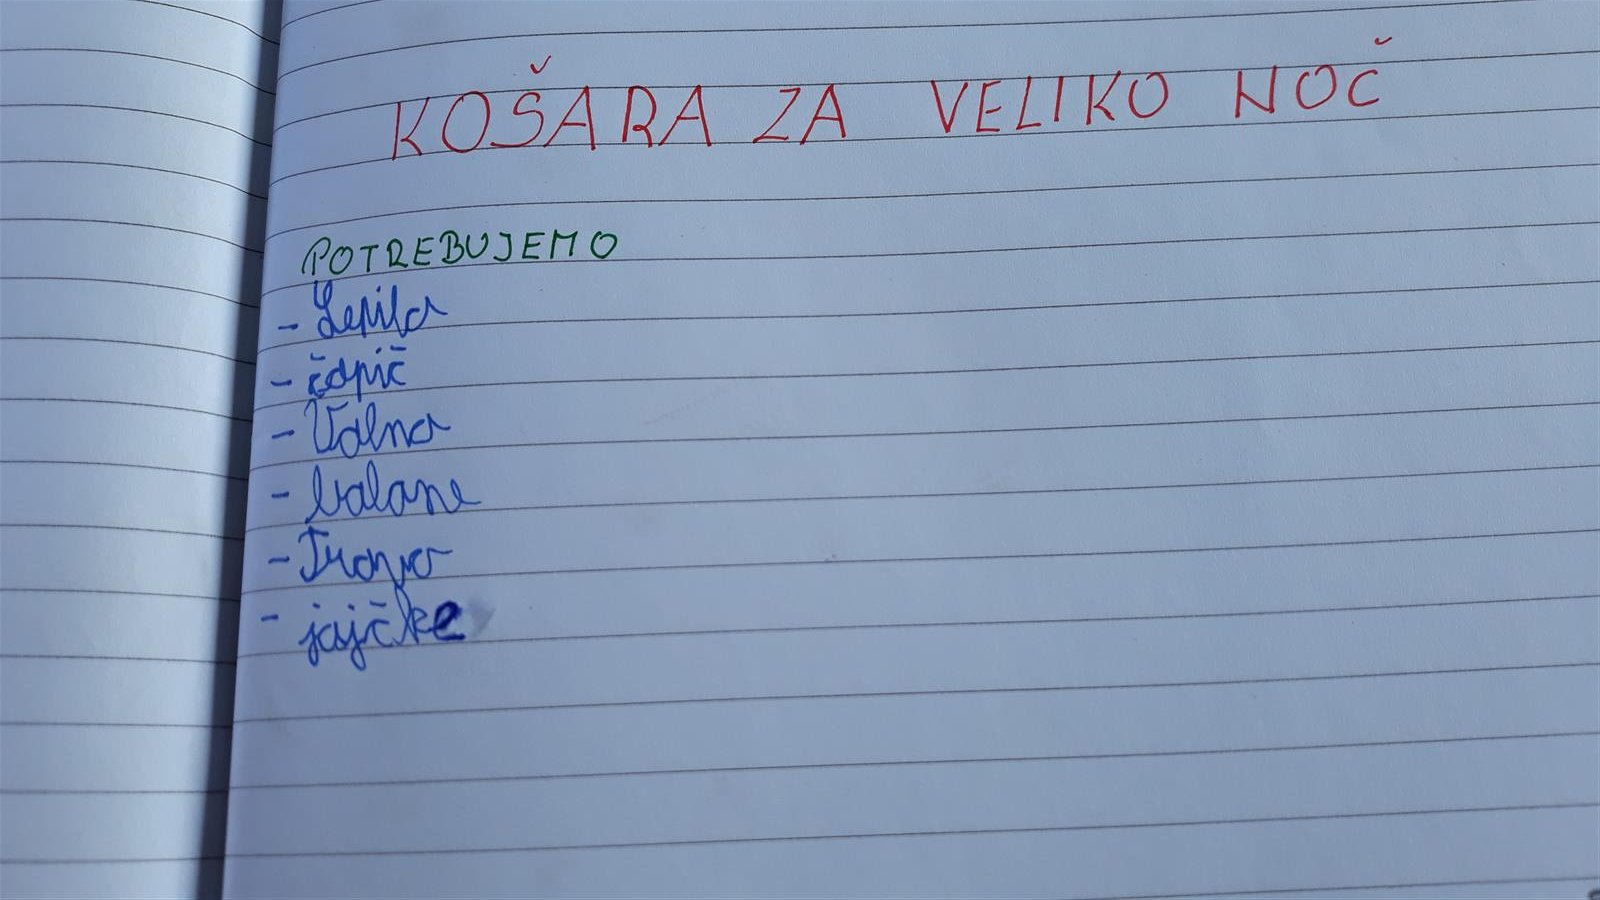 KOŠARA ZA VELIKO NOČ
POTREBUJEMO
- Lepilo
- čopič
- Volna
- balone
- Trava
- jajčke